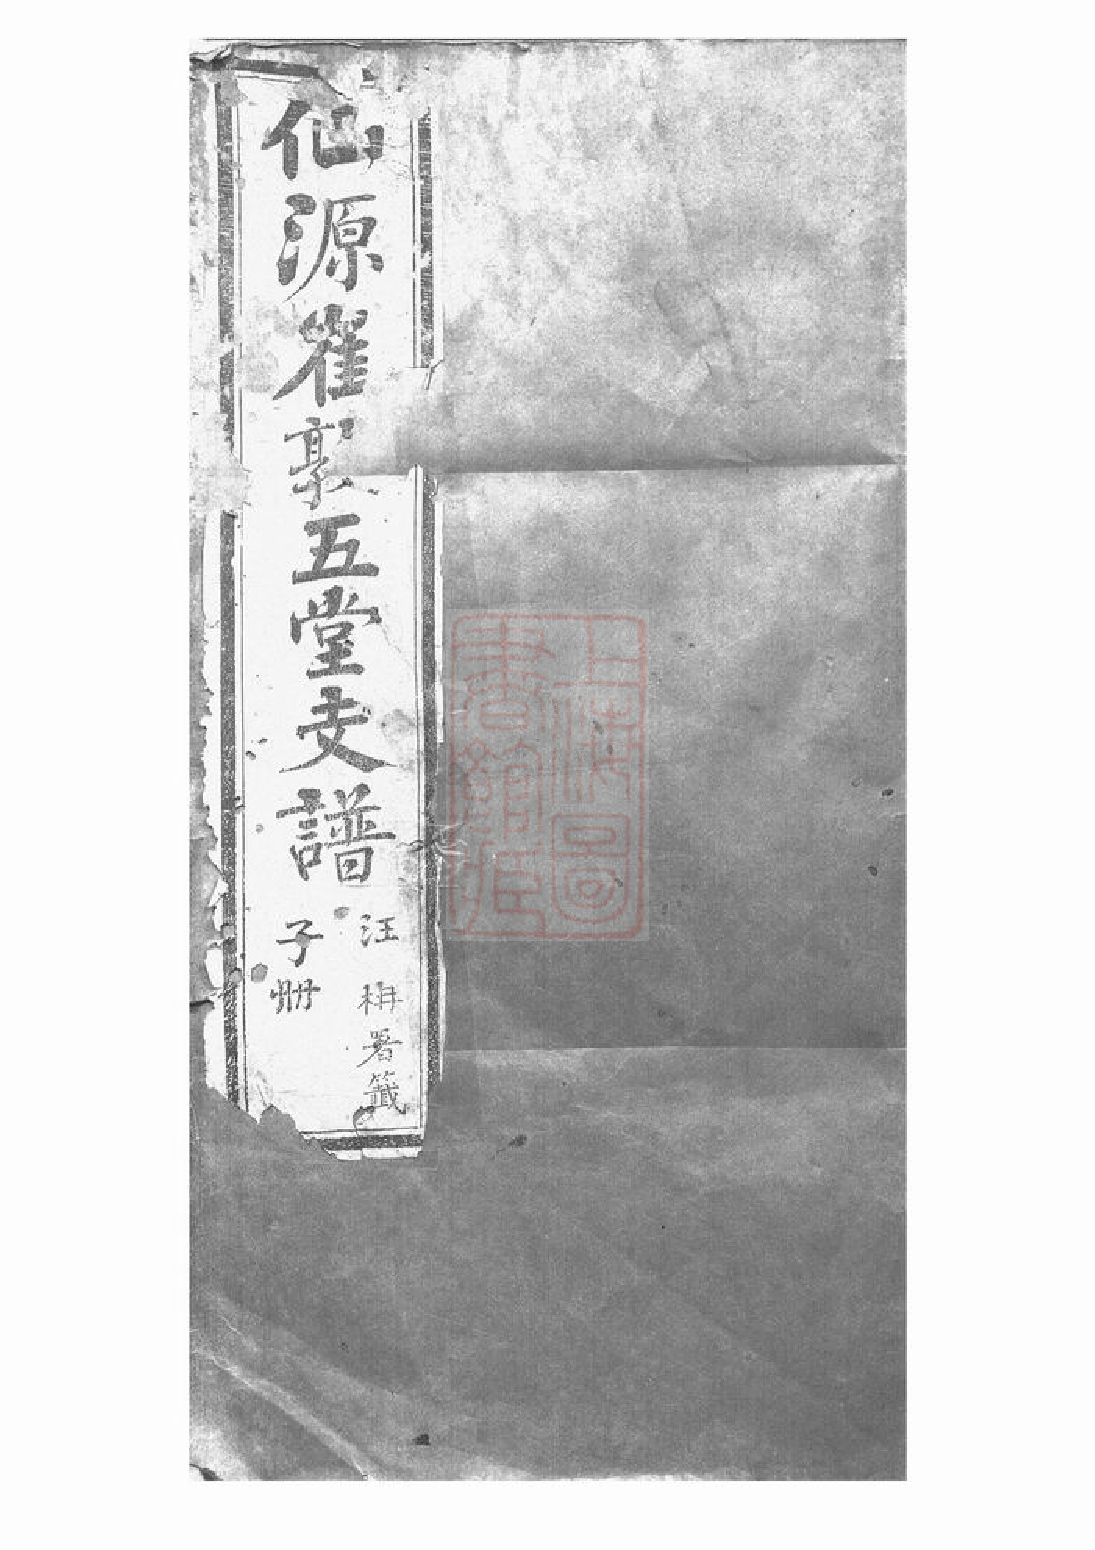 仙源崔郭五堂支譜
汪栴署籤
子册
上海圖
書館藏